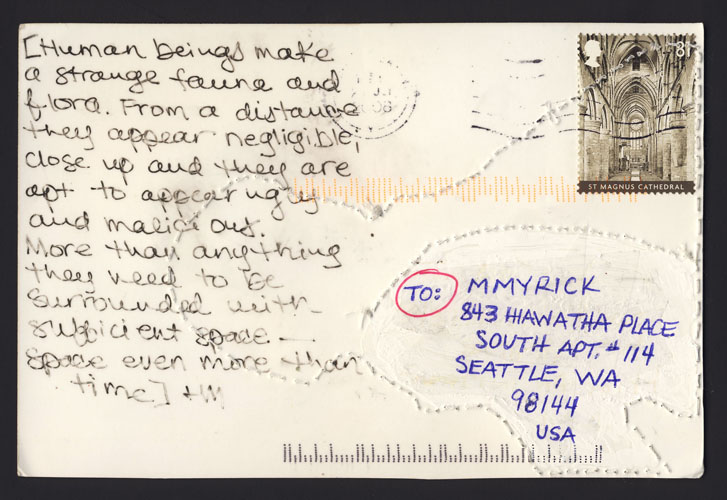 [Human beings make
a strange fauna and
flora. From a distance
they appear negligible;
close up and they are
apt to appear ugly
and malicious.
More than anything
they need to be
surrounded with
sufficient space —
space even more than
time.] HM
81
ST MAGNUS CATHEDRAL
TO: MMYRICK
843 HIAWATHA PLACE
SOUTH APT. # 114
SEATTLE, WA
98144
USA